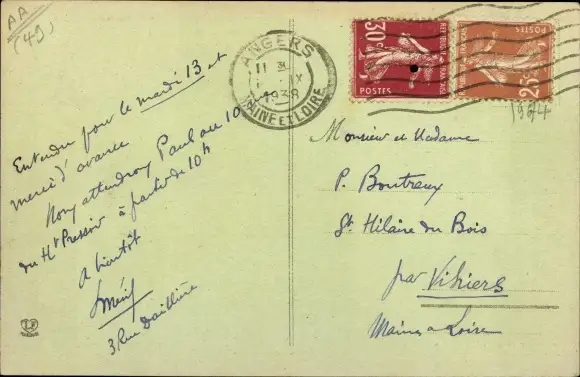 AA
(49)
ANGERS
11 30
IX
1938
MAINE ET LOIRE
30c
POSTES
25c
POSTES
1944
Entendu pour le mardi 13 et
merci d'avance
Nous attendrons Paul au 10
du Ht Pressoir à partir de 10h
A bientôt
3 Rue
Monsieur et Madame
P. Boutreux
St Hilaire du Bois
par Vihiers
Maine & Loire